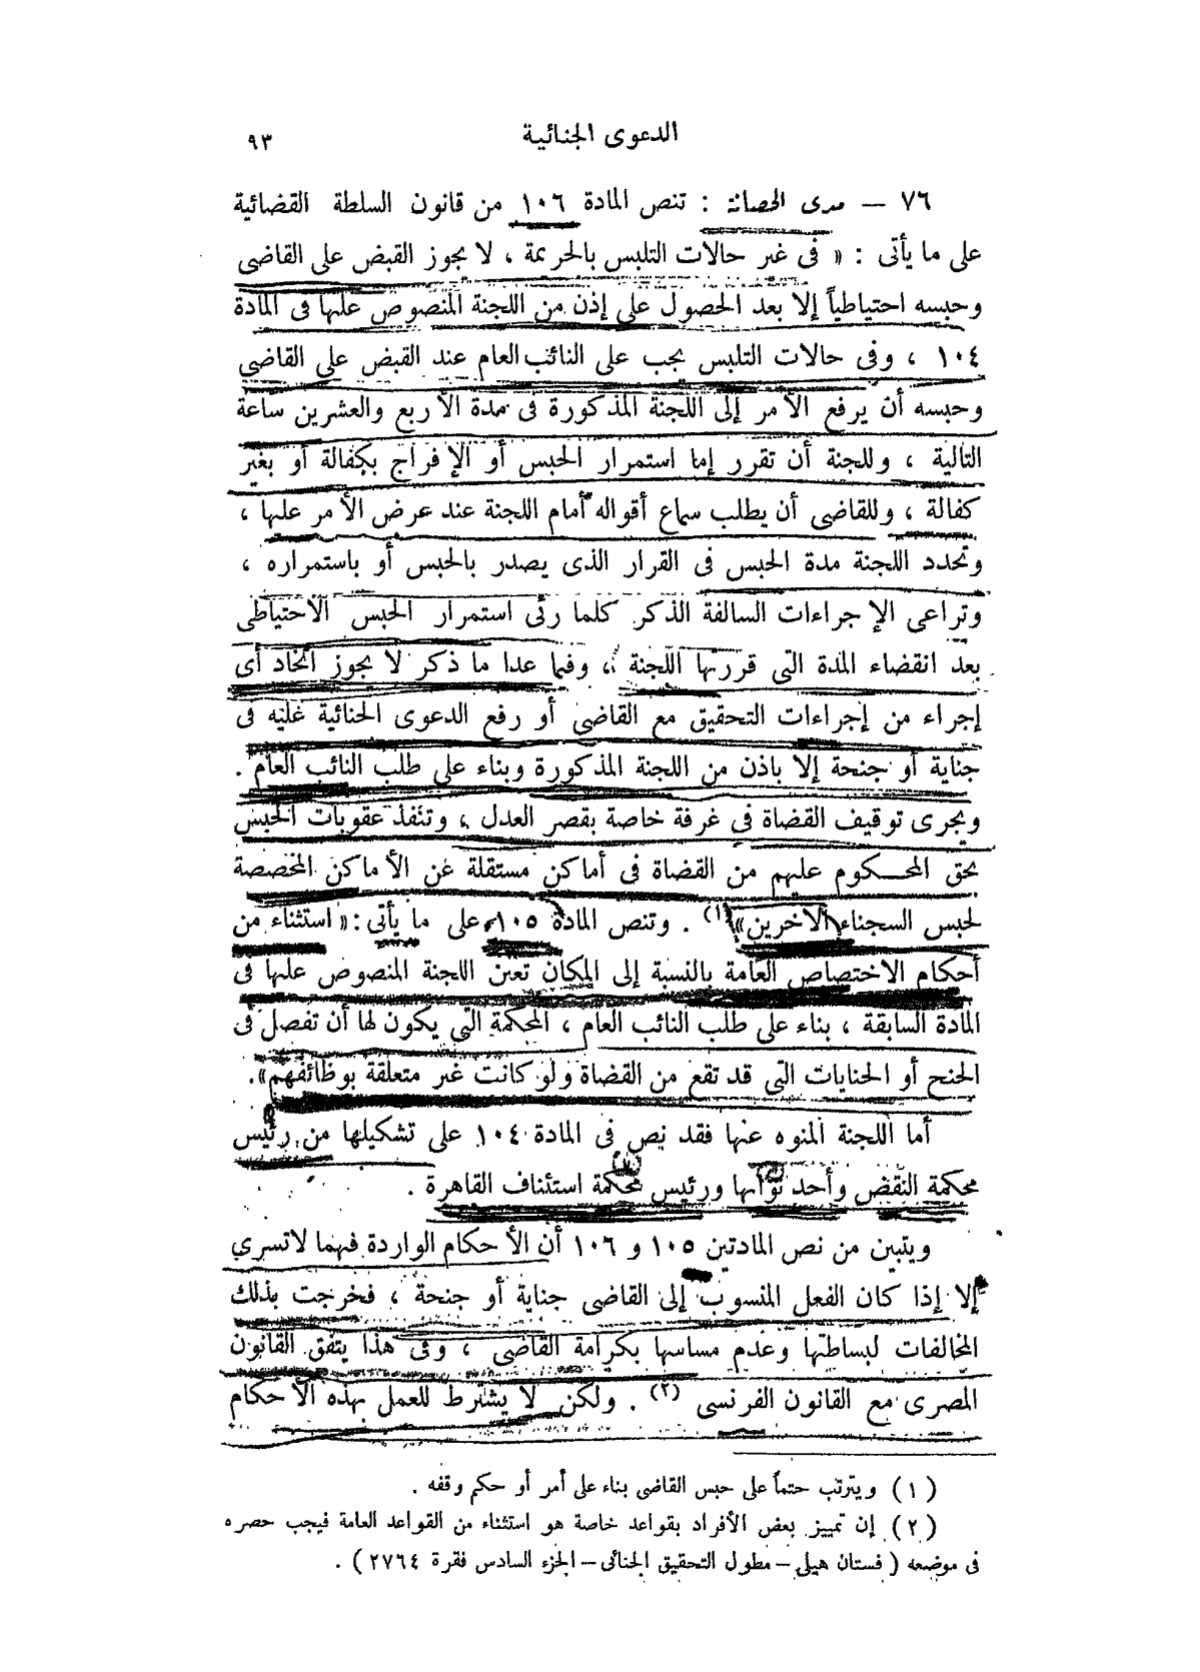 الدعوى الجنائية
٩٣
٧٦ — مدى الحصانة : تنص المادة ١٠٦ من قانون السلطة القضائية
على ما يأتى : « فى غير حالات التلبس بالجريمة ، لا يجوز القبض على القاضى
وحبسه احتياطياً إلا بعد الحصول على إذن من اللجنة المنصوص عليها فى المادة
١٠٤ ، وفى حالات التلبس يجب على النائب العام عند القبض على القاضى
وحبسه أن يرفع الأمر إلى اللجنة المذكورة فى مدة الأربع والعشرين ساعة
التالية ، وللجنة أن تقرر إما استمرار الحبس أو الإفراج بكفالة أو بغير
كفالة ، وللقاضى أن يطلب سماع أقواله أمام اللجنة عند عرض الأمر عليها ،
وتحدد اللجنة مدة الحبس فى القرار الذى يصدر بالحبس أو باستمراره ،
وتراعى الإجراءات السالفة الذكر كلما رئى استمرار الحبس الاحتياطى
بعد انقضاء المدة التى قررتها اللجنة ، وفيما عدا ما ذكر لا يجوز اتخاذ أى
إجراء من إجراءات التحقيق مع القاضى أو رفع الدعوى الجنائية عليه فى
جناية أو جنحة إلا باذن من اللجنة المذكورة وبناء على طلب النائب العام .
ويجرى توقيف القضاة فى غرفة خاصة بقصر العدل ، وتنفذ عقوبات الحبس
بحق المحكوم عليهم من القضاة فى أماكن مستقلة عن الأماكن المخصصة
لحبس السجناء الآخرين»(١) . وتنص المادة ١٠٥ على ما يأتى : « استثناء من
أحكام الاختصاص العامة بالنسبة إلى المكان تعين اللجنة المنصوص عليها فى
المادة السابقة ، بناء على طلب النائب العام ، المحكمة التى يكون لها أن تفصل فى
الجنح أو الجنايات التى قد تقع من القضاة ولو كانت غير متعلقة بوظائفهم».
أما اللجنة المنوه عنها فقد نص فى المادة ١٠٤ على تشكيلها من رئيس
محكمة النقض وأحد نوابها ورئيس محكمة استئناف القاهرة .
ويتبين من نص المادتين ١٠٥ و ١٠٦ أن الأحكام الواردة فيهما لاتسري
إلا إذا كان الفعل المنسوب إلى القاضى جناية أو جنحة ، فخرجت بذلك
المخالفات لبساطتها وعدم مساسها بكرامة القاضى ، وفى هذا يتفق القانون
المصرى مع القانون الفرنسى (٢) . ولكن لا يشترط للعمل بهذه الأحكام
(١) ويترتب حتماً على حبس القاضى بناء على أمر أو حكم وقفه .
(٢) إن تمييز بعض الأفراد بقواعد خاصة هو استثناء من القواعد العامة فيجب حصره
فى موضعه ( فستان هيلى – مطول التحقيق الجنائى – الجزء السادس فقرة ٢٧٦٤ ) .